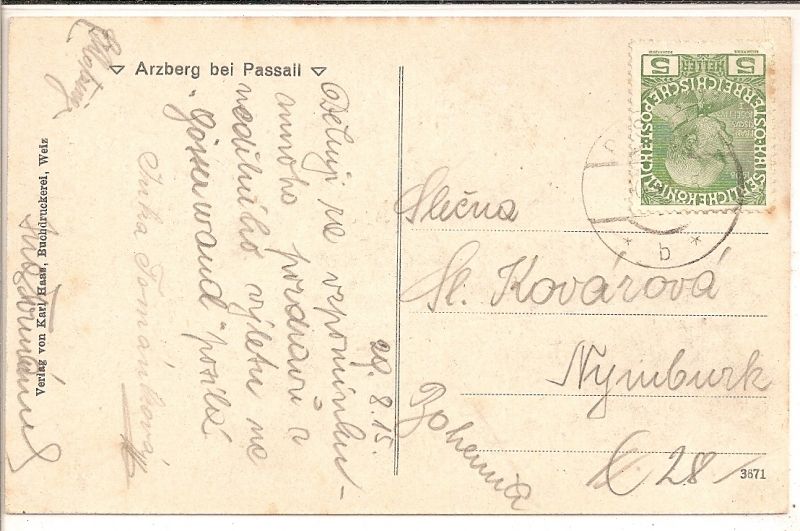 Arzberg bei Passail
Děkuji za vzpomínku
mnoho pozdravů z
nedělního výletu na
"Gösserwand" posílá
Inka Tománková
29. 8. 15.
Verlag von Karl Haas, Buchdruckerei, Weiz
Slečna
Sl. Kovářová
Nymburk
č 28
Bohemia
3671
5 HELLER 5
KAISERLICHE KÖNIGLICHE
ÖSTERREICHISCHE POST
* b *